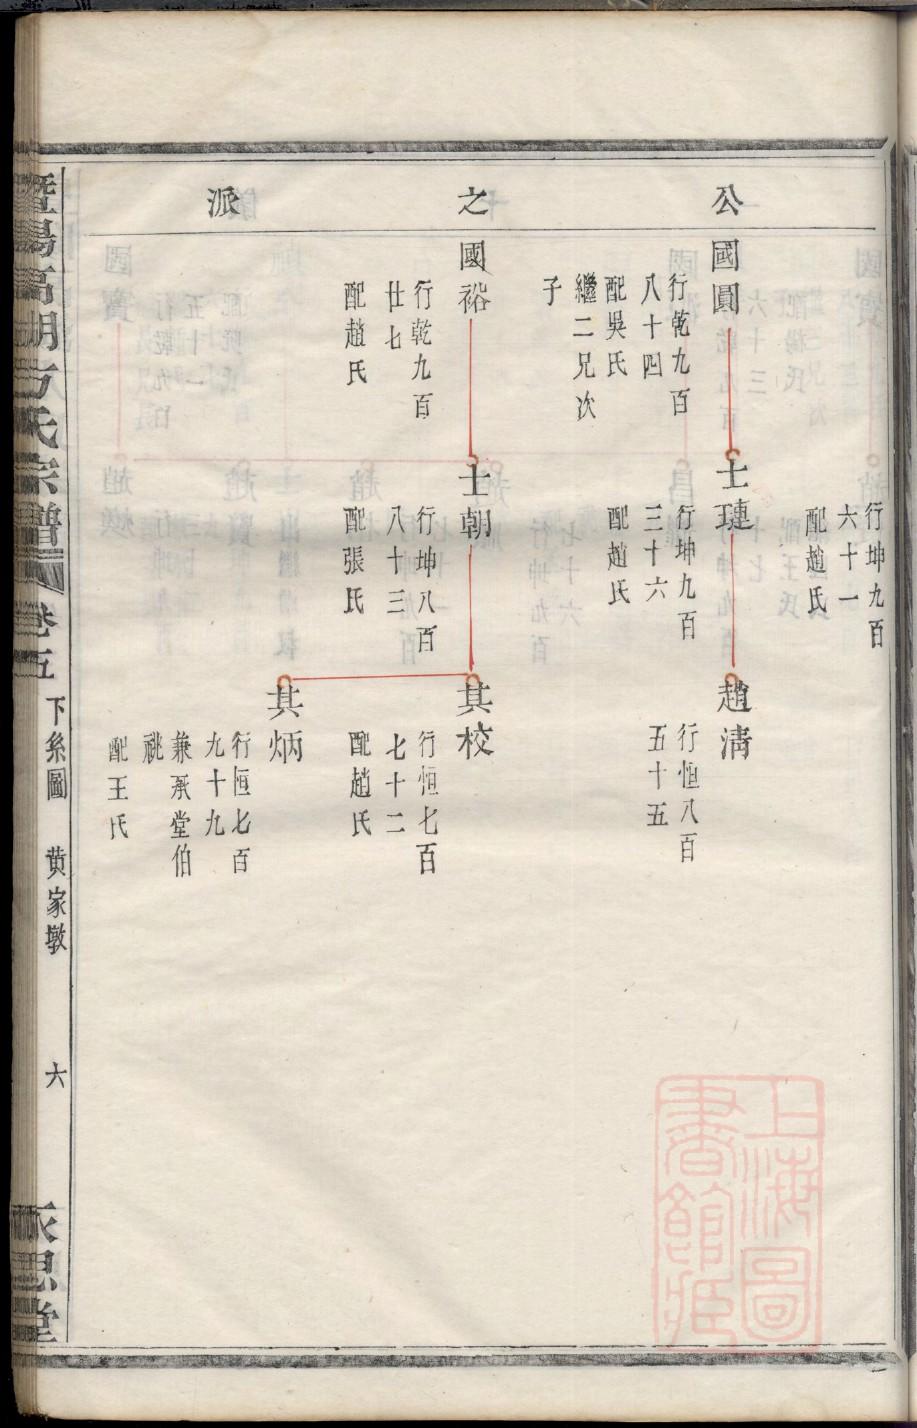 公
之
派
行坤九百
六十一
配趙氏
國圓
行乾九百
八十四
配吳氏
繼二兄次
子
士璉
行坤九百
三十六
配趙氏
趙清
行恒八百
五十五
國裕
行乾九百
廿七
配趙氏
士朝
行坤八百
八十三
配張氏
其校
行恒七百
七十二
配趙氏
其炳
行恒七百
九十九
兼承堂伯
祧
配王氏
暨陽高湖方氏宗譜
卷五
下糸圖
黃家墩
六
永思堂
上海圖
書館藏